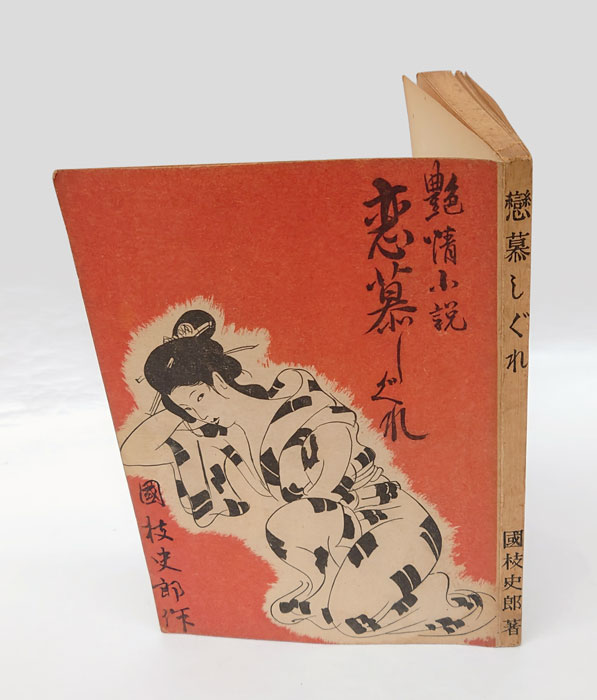 艶情小説
恋慕しぐれ
國枝史郎作
戀慕しぐれ
國枝史郎著